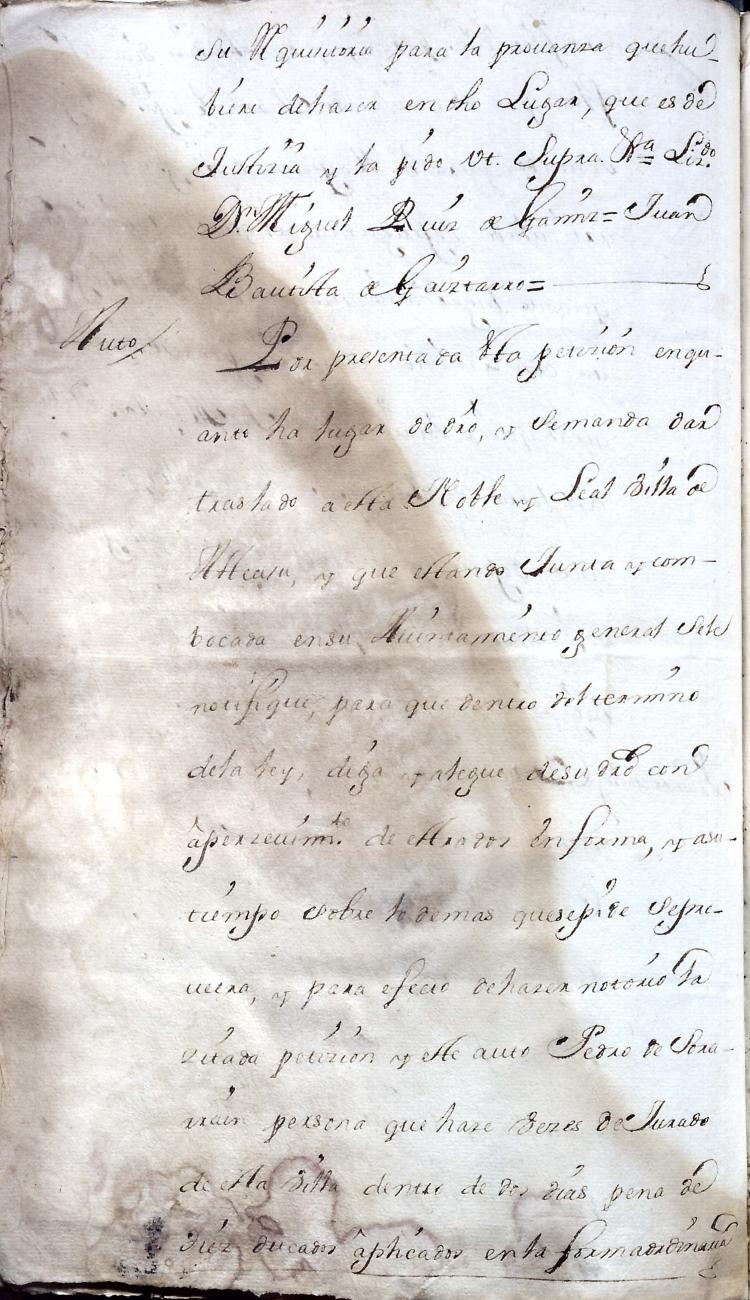 su Requisitoria para la prouanza que hu-
biere de hazer en dho Lugar, que es de
Justizia y la pido Vt. Supra. Lizdo
Dn Miguel Ruiz de Gamiz = Juan
Bautista de Gaiztarro =
Auto/
Por presentada esta petizion en qu-
anto ha lugar de dro, y se manda dar
traslado a esta Noble y Leal Villa de
y que estando Junta y com-
bocada en su Aiuntamiento general se le
notifique, para que dentro del termino
de la ley, diga y alegue de su dro con
aperzeuimto de estrados en forma, y a su
tiempo sobre lo demas que se pide se pro-
ueera, y para efecto de hazer notorio la
zitada petizion y este auto Pedro de Sora-
rrain persona que haze vezes de Jurado
de esta Villa dentro de dos dias pena de
diez ducados aplicados en la forma ordinaria